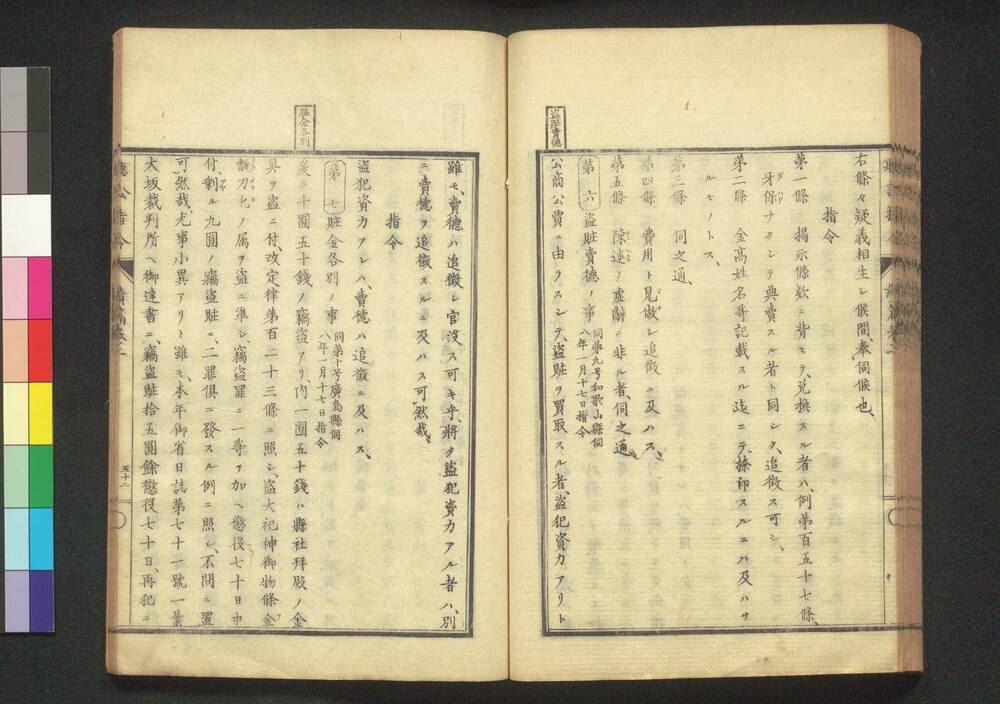 盗賍賣徳
右條々疑義相生シ候間、奉伺候也、
指令
第一條 揭示條款ニ背ヒテ、兌換スル者ハ、例第百五十七條、
牙保ナクシテ典賣スル者ト同シク、追徵ス可シ、
第二條 金高姓名等記載スル迄ニテ、捺印スルニハ及ハサ
ルモノトス、
第三條 伺之通、
第四條 費用ト見做シ追徵ニ及ハス、
第五條 陳述ノ虛辭ニ非ル者、伺之通、
第六 盗賍賣徳ノ事 同第九号和歌山縣伺
八年一月十七日指令
公商公賈ニ由ラスシテ、盗賍ヲ買取スル者、盗犯資力アリト
雖モ、賣徳ハ追徵シ官沒ス可キ乎、將タ盗犯資力アル者ハ、別
ニ賣徳ヲ追徵スルニ及ハス可然哉、
指令
盗犯資力アレハ、賣徳ハ追徵ニ及ハス、
賍金各別
第七 賍金各別ノ事 同第十号廣島縣伺
八年一月十七日指令
爰ニ十圓五十錢ノ竊盗アリ、内一圓五十錢ハ縣社拜殿ノ金
具ヲ盗ニ付、改定律第百二十三條ニ照シ、盗大祀神御物條金
翫刀ヒノ属ヲ盗ニ準シ、竊盗罪ニ一等ヲ加ヘ懲役七十日申
付、剩ル九圓ノ竊盗賍ニ、二罪俱ニ發スル例ニ照シ、不問ニ置
可然哉、尤事小異アリト雖モ、本年御省日誌第七十一號一葉
大坂裁判所ヘ御達書ニ、竊盗賍拾五圓餘懲役七十日、再犯ニ
五十一